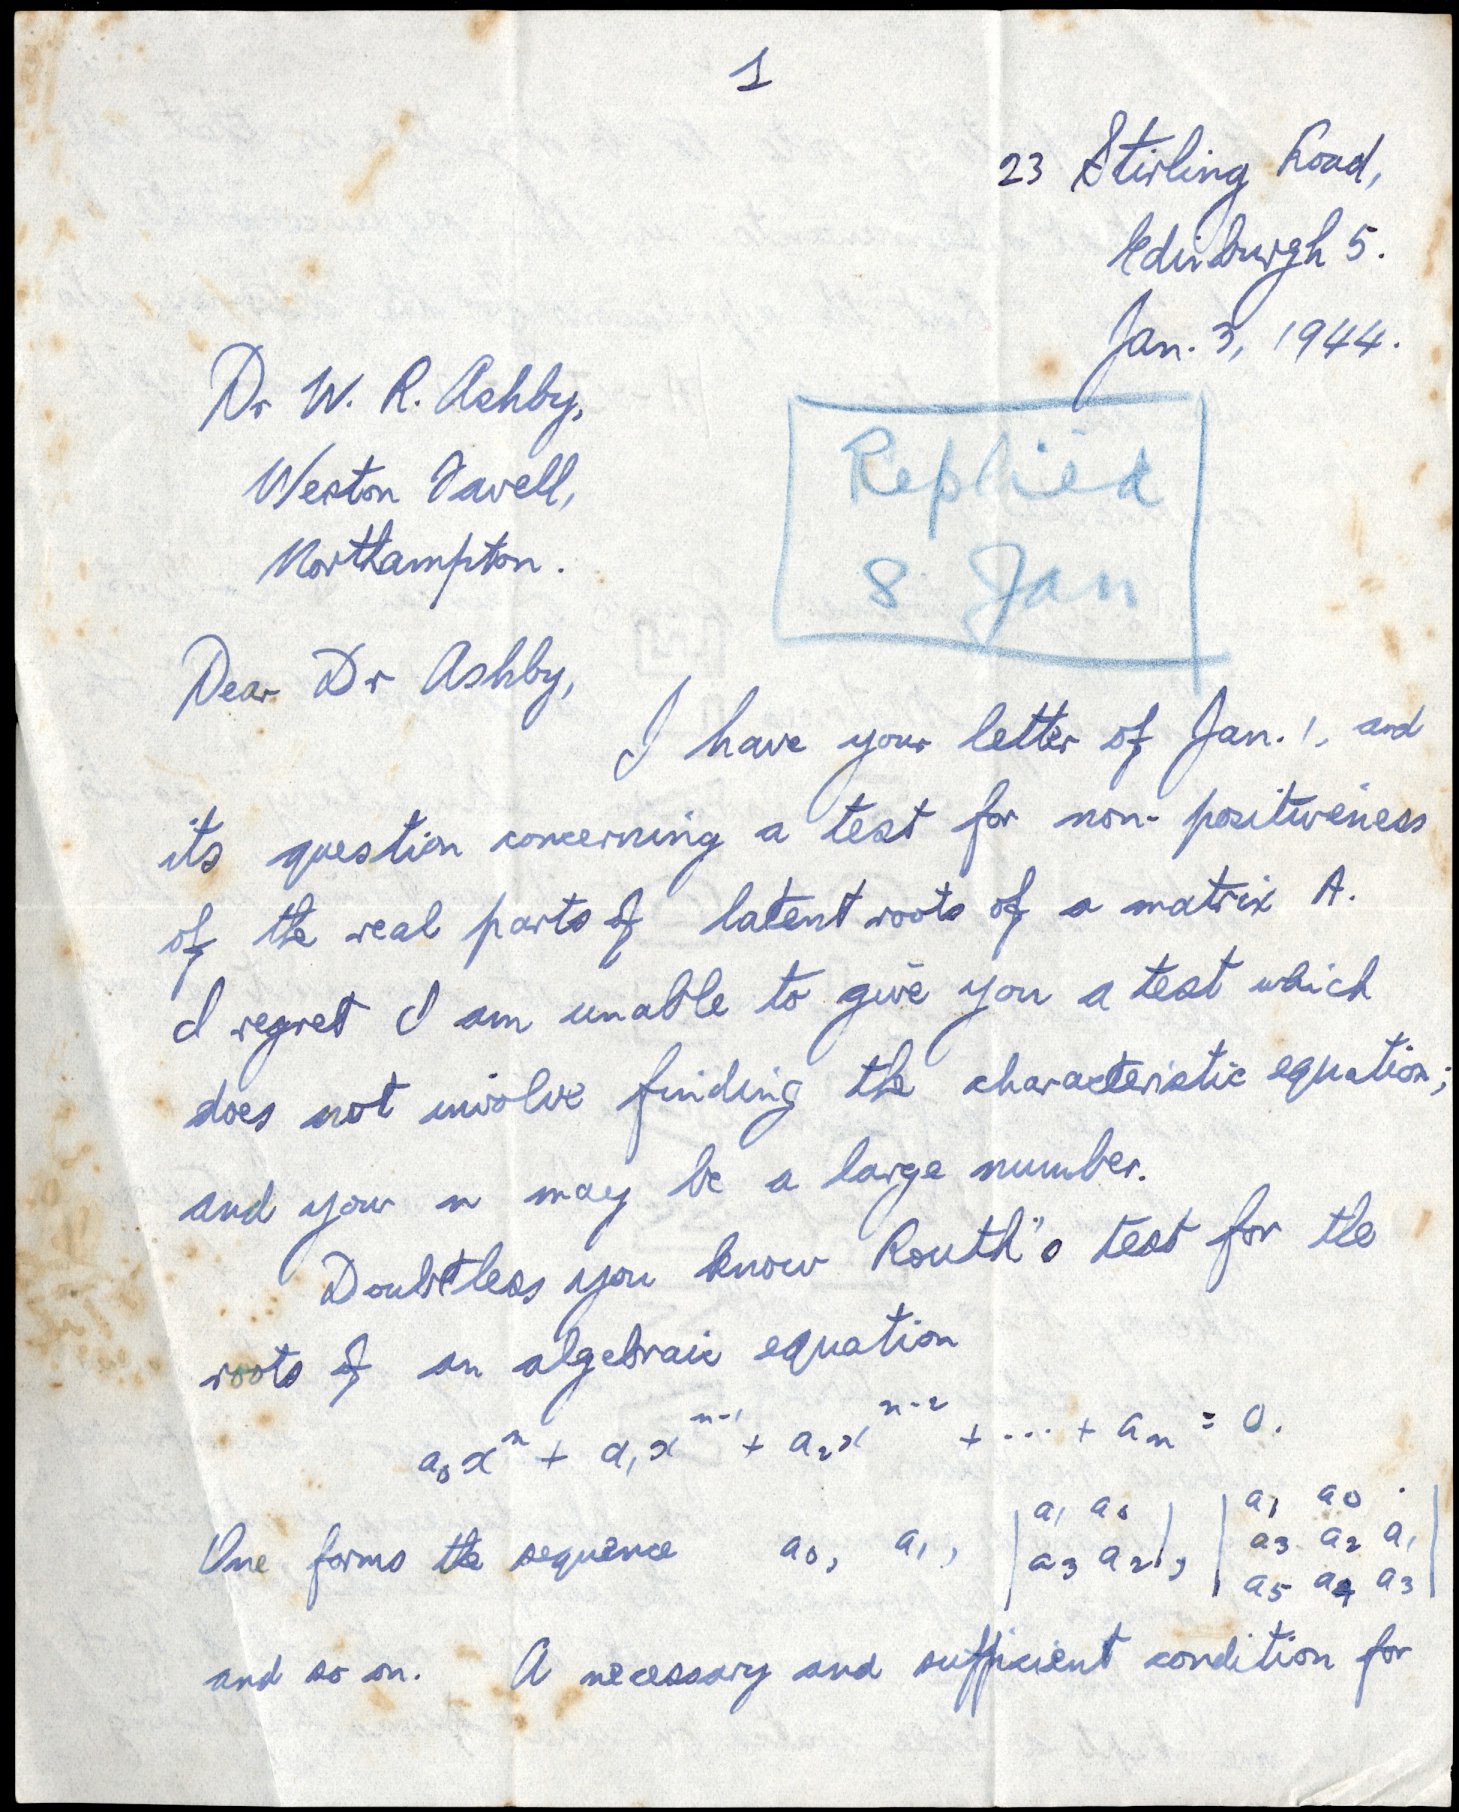 1
23 Stirling Road,
Edinburgh 5.
Jan. 3, 1944.
Dr W. R. Ashby,
Weston Favell,
Northampton.
Replied
8 Jan
Dear Dr Ashby,
I have your letter of Jan. 1, and
its question concerning a test for non-positiveness
of the real parts of latent roots of a matrix A.
I regret I am unable to give you a test which
does not involve finding the characteristic equation;
and your n may be a large number.
Doubtless you know Routh's test for the
roots of an algebraic equation
a₀xⁿ + a₁xⁿ⁻¹ + a₂xⁿ⁻² + ··· + aₙ = 0.
One forms the sequence a₀, a₁, |a₁ a₀ / a₃ a₂|, |a₁ a₀ · / a₃ a₂ a₁ / a₅ a₄ a₃|
and so on. A necessary and sufficient condition for